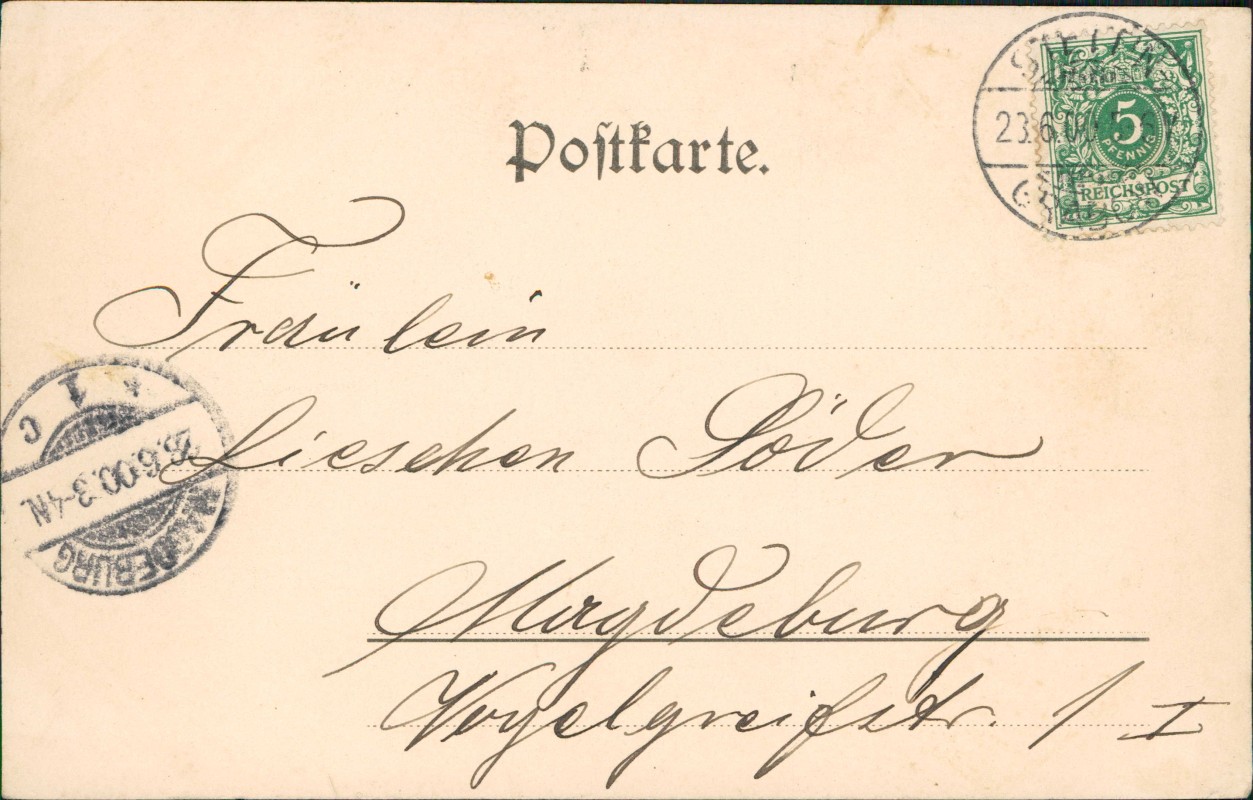 Postkarte.
5
PFENNIG
REICHSPOST
23.6.00
Fräulein
Lieschen Söder
Magdeburg
Vogelgreifstr. 1 I
MAGDEBURG
23.6.00.3-4N.
* 1 c